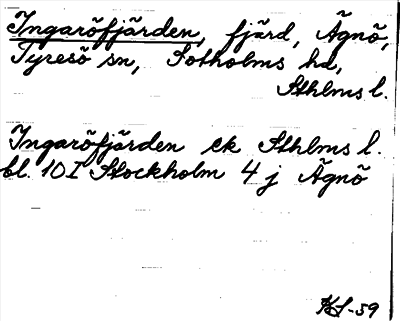 Ingaröfjärden, fjärd, Ägnö,
Tyresö sn, Sotholms hd,
Sthlms l.
Ingaröfjärden ek Sthlms l.
bl. 10 I Stockholm 4 j Ägnö
-59